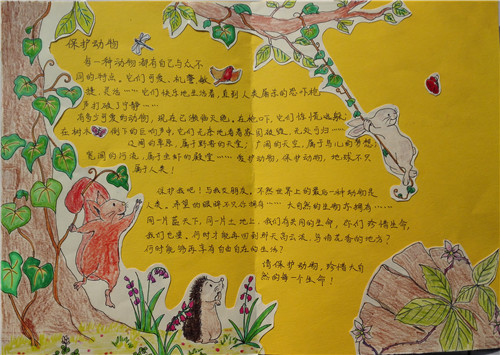 保护动物
每一种动物都有自己与众不
同的特点。它们可爱、机警敏
捷、是活……它们快乐地生活着,直到人类屠杀的恐吓枪
声打破了宁静……
有多少可爱的动物,现在已濒临灭绝。在枪口下,它们惊慌逃躲;
在树木 倒下的巨响声中,它们无奈地看着家园被毁,无处可归……
辽阔的草原,属于野兽的天堂;广阔的天空,属于鸟儿的梦想;
宽阔的河流,属于鱼虾的殿堂……爱护动物,保护动物,地球不只
属于人类!
保护我吧!与我交朋友,不然世界上的最后一种动物是
人类,希望的眼眸不只你拥有……大自然的生物亦拥有……
同一片蓝天下,同一片土地上,我们有共同的生命,你们珍惜生命,
我们也要,何时才能再回到那天高云淡、鸟语花香的地方?
何时能够再享有自由自在的生活?
请保护动物,珍惜大自
然的每一个生命!